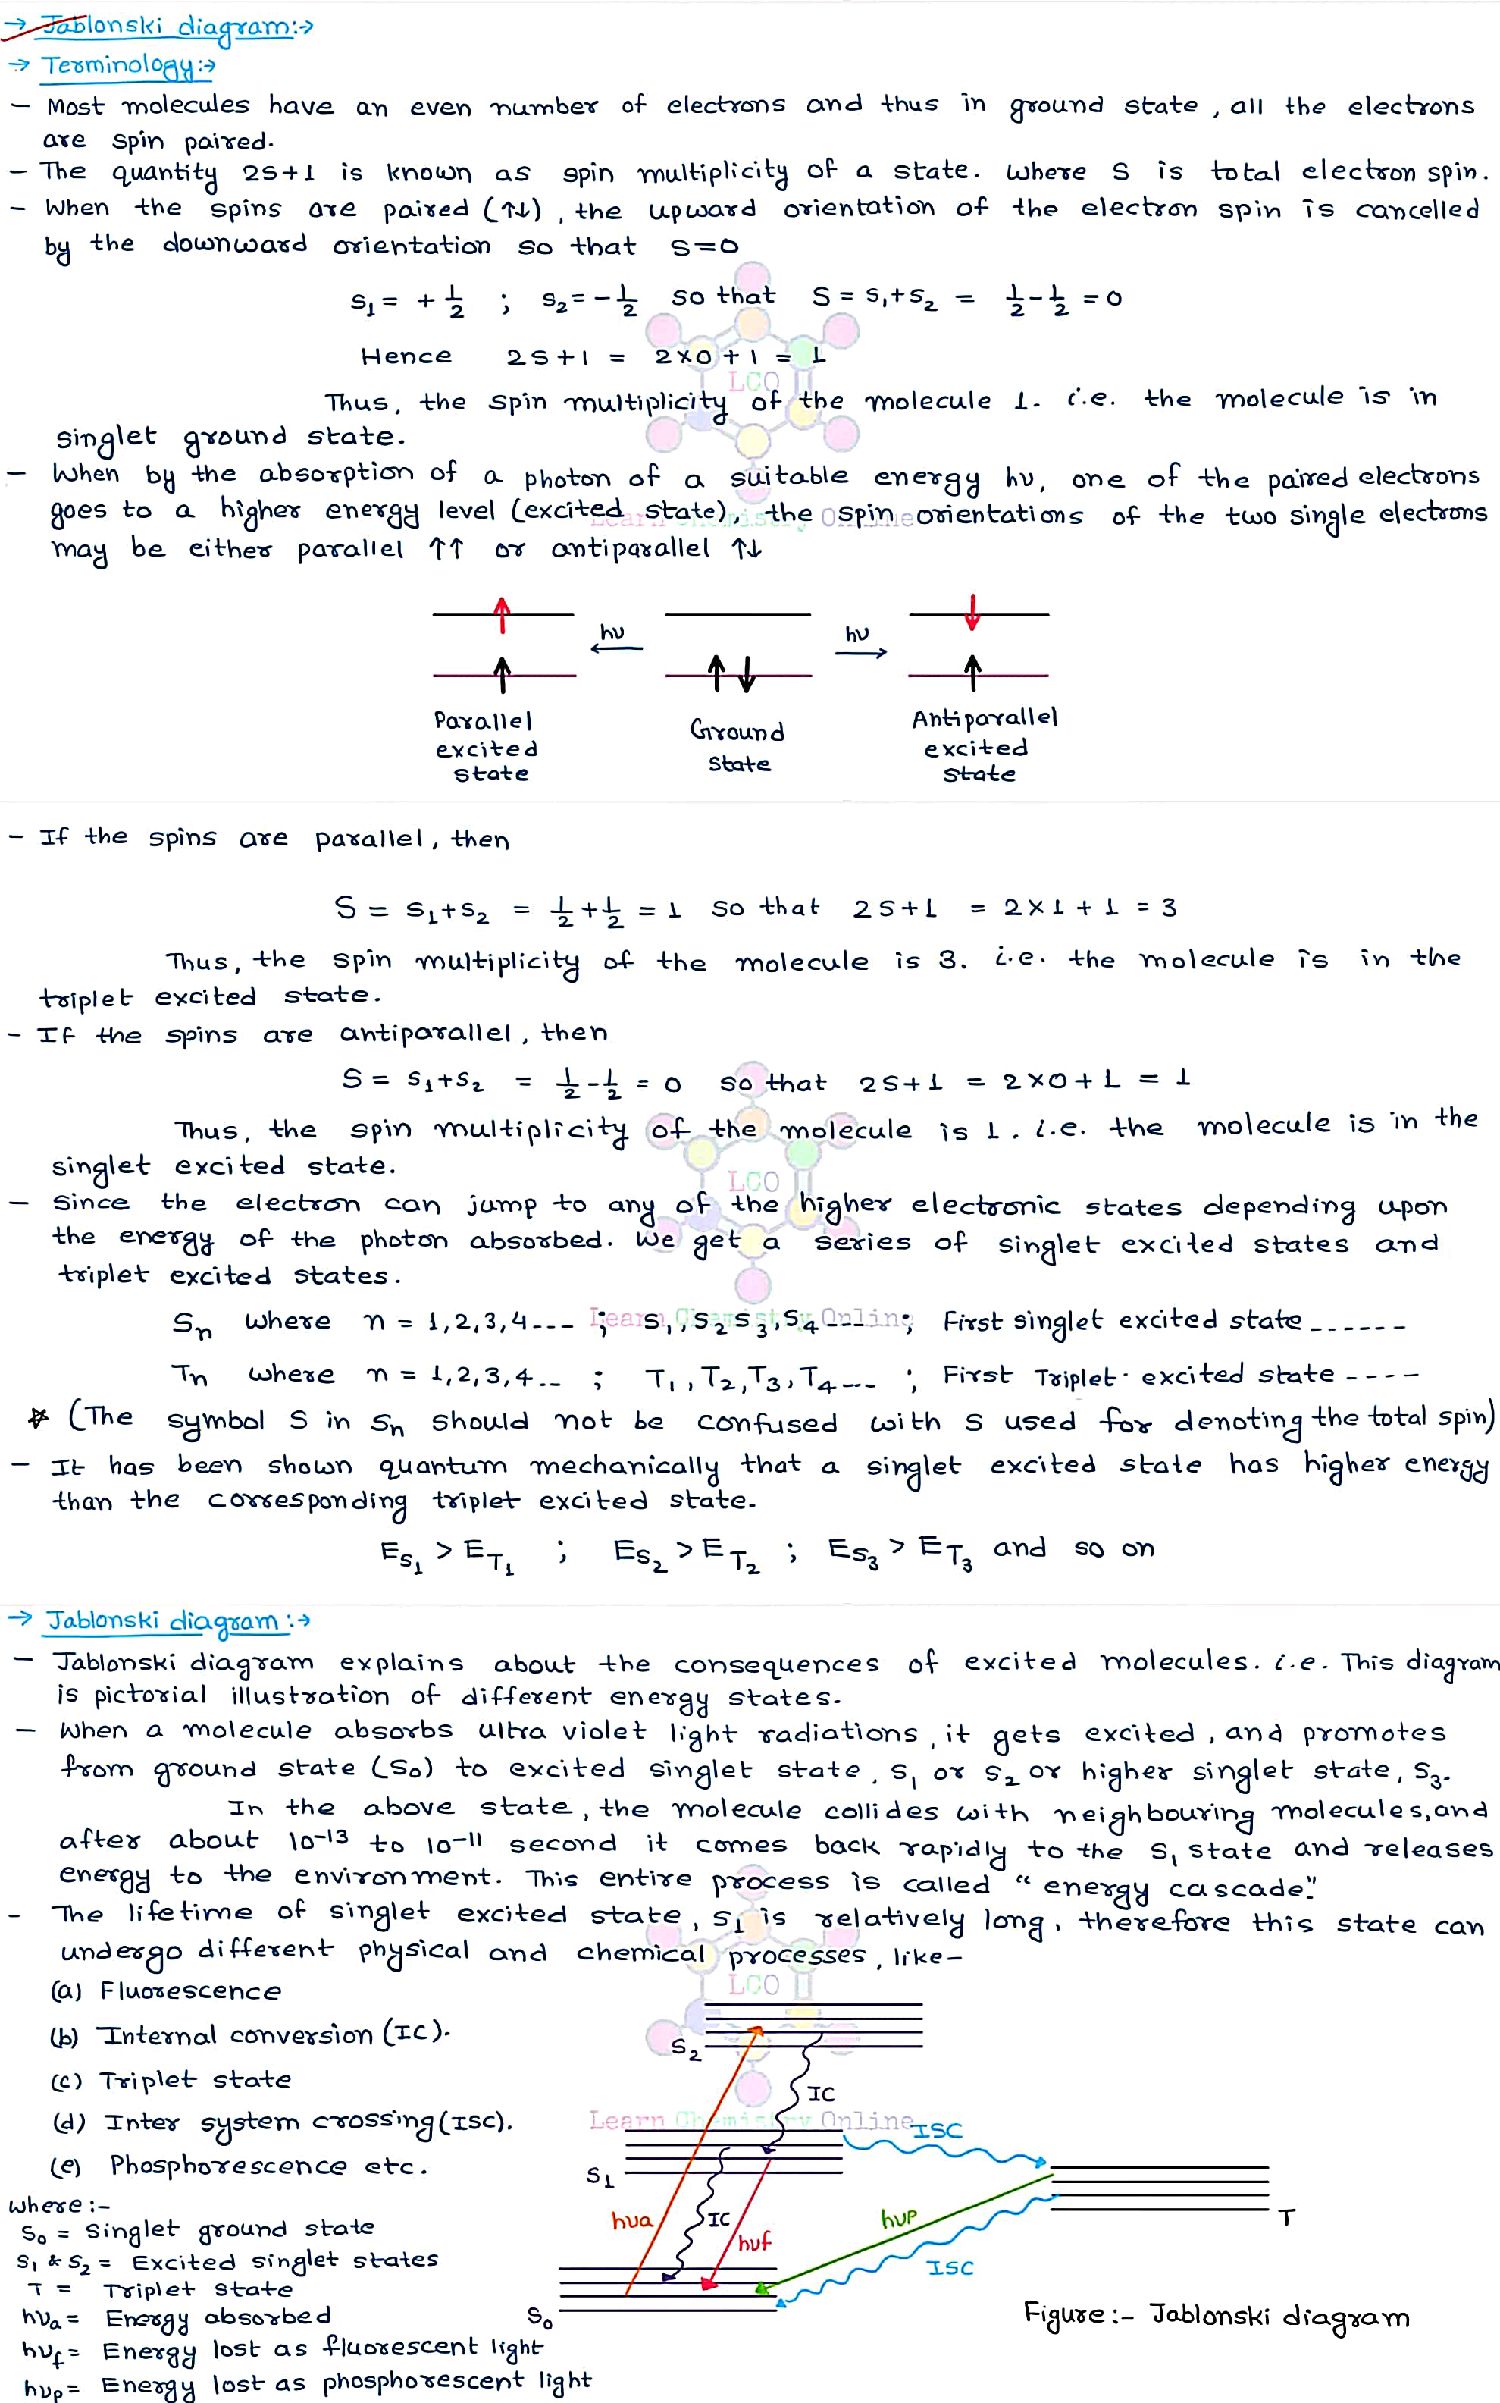 → Jablonski diagram:→
→ Terminology:→
– Most molecules have an even number of electrons and thus in ground state, all the electrons
are spin paired.
– The quantity 2S+1 is known as spin multiplicity of a state. where S is total electron spin.
– When the spins are paired (↑↓), the upward orientation of the electron spin is cancelled
by the downward orientation so that S=0
s₁ = + 1/2 ; s₂ = – 1/2 so that S = s₁+s₂ = 1/2 – 1/2 = 0
Hence 2S+1 = 2×0+1 = 1
LCO
Thus, the spin multiplicity of the molecule 1. i.e. the molecule is in
singlet ground state.
– When by the absorption of a photon of a suitable energy hν, one of the paired electrons
goes to a higher energy level (excited state), the spin orientations of the two single electrons
Learn Chemistry Online
may be either parallel ↑↑ or antiparallel ↑↓
hν hν
Parallel excited state
Ground state
Antiparallel excited state
– If the spins are parallel, then
S = s₁+s₂ = 1/2 + 1/2 = 1 so that 2S+1 = 2×1+1 = 3
Thus, the spin multiplicity of the molecule is 3. i.e. the molecule is in the
triplet excited state.
– If the spins are antiparallel, then
S = s₁+s₂ = 1/2 – 1/2 = 0 so that 2S+1 = 2×0+1 = 1
Thus, the spin multiplicity of the molecule is 1. i.e. the molecule is in the
singlet excited state.
LCO
– Since the electron can jump to any of the higher electronic states depending upon
the energy of the photon absorbed. We get a series of singlet excited states and
triplet excited states.
Sₙ where n = 1,2,3,4--- ; S₁,S₂S₃,S₄---- ; First singlet excited state------
Learn Chemistry Online
Tₙ where n = 1,2,3,4-- ; T₁,T₂,T₃,T₄--- ; First Triplet excited state ----
☆ (The symbol S in Sₙ should not be confused with S used for denoting the total spin)
– It has been shown quantum mechanically that a singlet excited state has higher energy
than the corresponding triplet excited state.
E_S₁ > E_T₁ ; E_S₂ > E_T₂ ; E_S₃ > E_T₃ and so on
→ Jablonski diagram:→
– Jablonski diagram explains about the consequences of excited molecules. i.e. This diagram
is pictorial illustration of different energy states.
– When a molecule absorbs ultra violet light radiations, it gets excited, and promotes
from ground state (S₀) to excited singlet state, S₁ or S₂ or higher singlet state, S₃.
In the above state, the molecule collides with neighbouring molecules, and
after about 10⁻¹³ to 10⁻¹¹ second it comes back rapidly to the S₁ state and releases
energy to the environment. This entire process is called "energy cascade."
– The lifetime of singlet excited state, S₁ is relatively long, therefore this state can
undergo different physical and chemical processes, like–
LCO
(a) Fluorescence
(b) Internal conversion (IC).
(c) Triplet state
(d) Inter system crossing (ISC).
(e) Phosphorescence etc.
where:-
S₀ = Singlet ground state
S₁ & S₂ = Excited singlet states
T = Triplet state
hνₐ = Energy absorbed
hν_f = Energy lost as fluorescent light
hν_p = Energy lost as phosphorescent light
S₂
IC
Learn Chemistry Online
ISC
S₁
hνa
IC
hνf
hνp
T
ISC
S₀
Figure:- Jablonski diagram